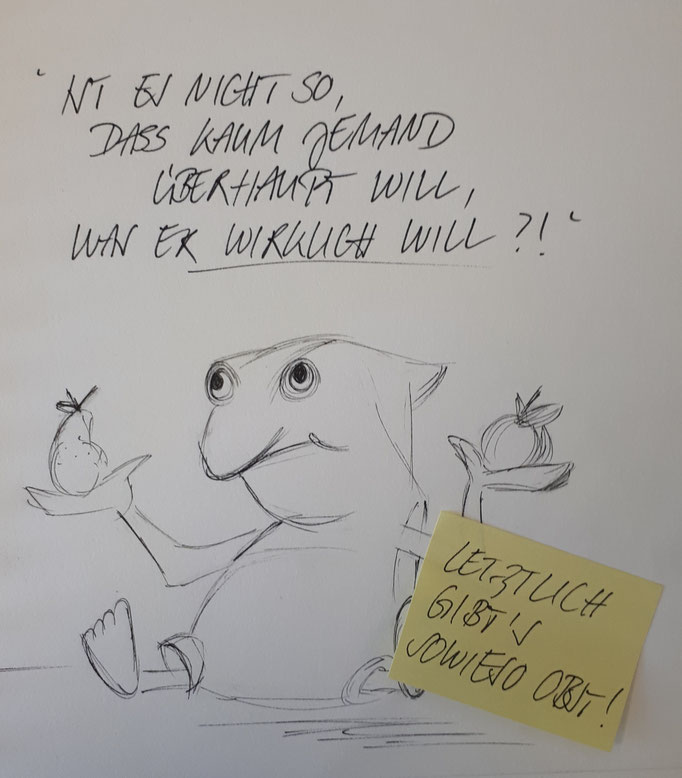 'IST ES NICHT SO,
DASS KAUM JEMAND
ÜBERHAUPT WILL,
WAS ER WIRKLICH WILL?!'
LETZTLICH
GIBT'S
SOWIESO OBST!